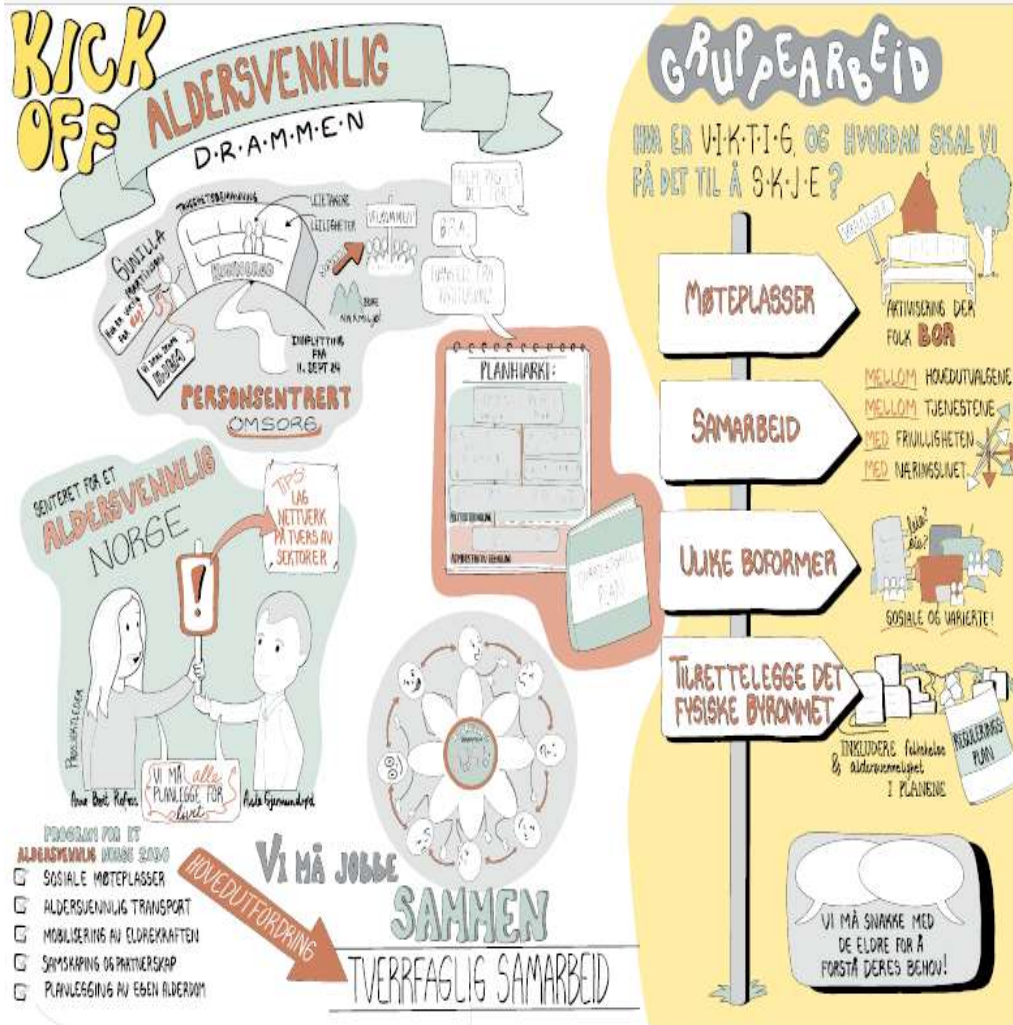 KICK
OFF
ALDERSVENNLIG
D·R·A·M·M·E·N
TRYGGHETSBEMANNING
LEIETAKERE
LEILIGHETER
GUNILLA
HVA ER VIKTIG
FOR
VI SKAL DRIVE
VELKOMMEN!
BRA!
NÆRMILJØ!
INNFLYTTING
FRA
11. SEPT 24
PERSONSENTRERT
OMSORG
SENTERET FOR ET
ALDERSVENNLIG
NORGE
TIPS
LAG
NETTVERK
PÅ TVERS AV
SEKTORER
!
PROSJEKTLEDER
Anne Berit
VI MÅ alle
PLANLEGGE FOR
livet
PLANHIERARKI:
ADMINISTRATIV BEHANDLING
PLAN
PROGRAM FOR ET
ALDERSVENNLIG NORGE 2030
SOSIALE MØTEPLASSER
ALDERSVENNLIG TRANSPORT
MOBILISERING AV ELDREKRAFTEN
SAMSKAPING OG PARTNERSKAP
PLANLEGGING AV EGEN ALDERDOM
HOVEDUTFORDRING
VI MÅ JOBBE
SAMMEN
TVERRFAGLIG SAMARBEID
GRUPPEARBEID
HVA ER V·I·K·T·I·G, OG HVORDAN SKAL VI
FÅ DET TIL Å S·K·J·E?
MØTEPLASSER
AKTIVISERING DER
FOLK BOR
SAMARBEID
MELLOM HOVEDUTVALGENE
MELLOM TJENESTENE
MED FRIVILLIGHETEN
MED NÆRINGSLIVET
ULIKE BOFORMER
leie?
eie?
SOSIALE OG VARIERTE!
TILRETTELEGGE DET
FYSISKE BYROMMET
INKLUDERE folkehelse
& aldersvennelighet
I PLANENE
REGULERINGS
PLAN
VI MÅ SNAKKE MED
DE ELDRE FOR Å
FORSTÅ DERES BEHOV!